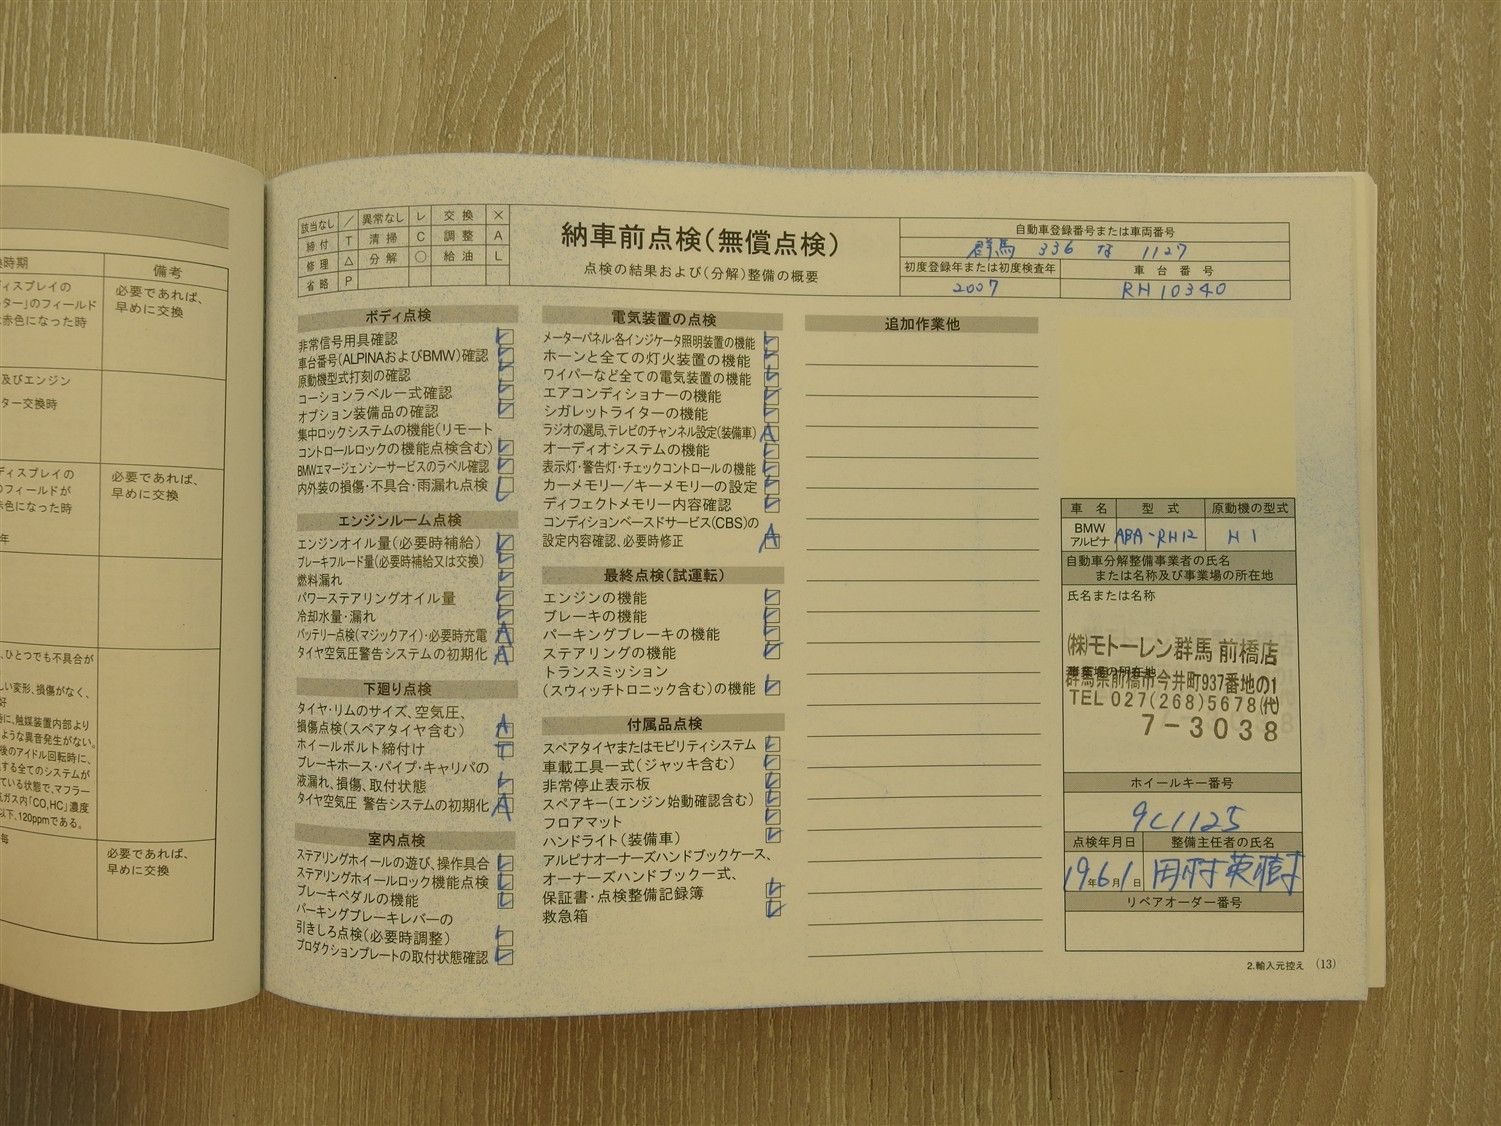 換時期
備考
ディスプレイの
必要であれば、
ター」のフィールド
早めに交換
赤色になった時
及びエンジン
ター交換時
ディスプレイの
必要であれば、
のフィールドが
早めに交換
赤色になった時
年
、ひとつでも不具合が
しい変形、損傷がなく、
好
時に、触媒装置内部より
ような異音発生がない。
後のアイドル回転時に、
する全てのシステムが
ている状態で、マフラー
気ガス内「CO,HC」濃度
以下、120ppmである。
毎
必要であれば、
早めに交換
該当なし ／ 異常なし レ 交換 ×
締付 T 清掃 C 調整 A
修理 △ 分解 ○ 給油 L
省略 P
納車前点検(無償点検)
点検の結果および(分解)整備の概要
自動車登録番号または車両番号
群馬 336 な 1127
初度登録年または初度検査年
車台番号
2007
RH10340
ボディ点検
非常信号用具確認 レ
車台番号(ALPINAおよびBMW)確認 レ
原動機型式打刻の確認 レ
コーションラベル一式確認 レ
オプション装備品の確認 レ
集中ロックシステムの機能(リモート
コントロールロックの機能点検含む) レ
BMWエマージェンシーサービスのラベル確認 レ
内外装の損傷・不具合・雨漏れ点検 レ
エンジンルーム点検
エンジンオイル量(必要時補給) レ
ブレーキフルード量(必要時補給又は交換) レ
燃料漏れ レ
パワーステアリングオイル量 レ
冷却水量・漏れ レ
バッテリー点検(マジックアイ)・必要時充電 A
タイヤ空気圧警告システムの初期化 A
下廻り点検
タイヤ・リムのサイズ、空気圧、
損傷点検(スペアタイヤ含む) A
ホイールボルト締付け T
ブレーキホース・パイプ・キャリパの
液漏れ、損傷、取付状態 レ
タイヤ空気圧 警告システムの初期化 A
室内点検
ステアリングホイールの遊び、操作具合 レ
ステアリングホイールロック機能点検 レ
ブレーキペダルの機能 レ
パーキングブレーキレバーの
引きしろ点検(必要時調整) レ
プロダクションプレートの取付状態確認 レ
電気装置の点検
メーターパネル・各インジケータ照明装置の機能 レ
ホーンと全ての灯火装置の機能 レ
ワイパーなど全ての電気装置の機能 レ
エアコンディショナーの機能 レ
シガレットライターの機能 レ
ラジオの選局、テレビのチャンネル設定(装備車) A
オーディオシステムの機能 レ
表示灯・警告灯・チェックコントロールの機能 レ
カーメモリー/キーメモリーの設定 レ
ディフェクトメモリー内容確認 レ
コンディションベースドサービス(CBS)の
設定内容確認、必要時修正 A
最終点検(試運転)
エンジンの機能 レ
ブレーキの機能 レ
パーキングブレーキの機能 レ
ステアリングの機能 レ
トランスミッション
(スウィッチトロニック含む)の機能 レ
付属品点検
スペアタイヤまたはモビリティシステム レ
車載工具一式(ジャッキ含む) レ
非常停止表示板 レ
スペアキー(エンジン始動確認含む) レ
フロアマット レ
ハンドライト(装備車) レ
アルピナオーナーズハンドブックケース、
オーナーズハンドブック一式、
保証書・点検整備記録簿 レ
救急箱 レ
追加作業他
車名 型式 原動機の型式
BMW
アルピナ ABA-RH12 H1
自動車分解整備事業者の氏名
または名称及び事業場の所在地
氏名または名称
(株)モトーレン群馬 前橋店
事業場の所在地
群馬県前橋市今井町937番地の1
TEL 027(268)5678(代)
7-3038
ホイールキー番号
9C1125
点検年月日 整備主任者の氏名
19年6月1日 田村英樹
リペアオーダー番号
2.輸入元控え (13)